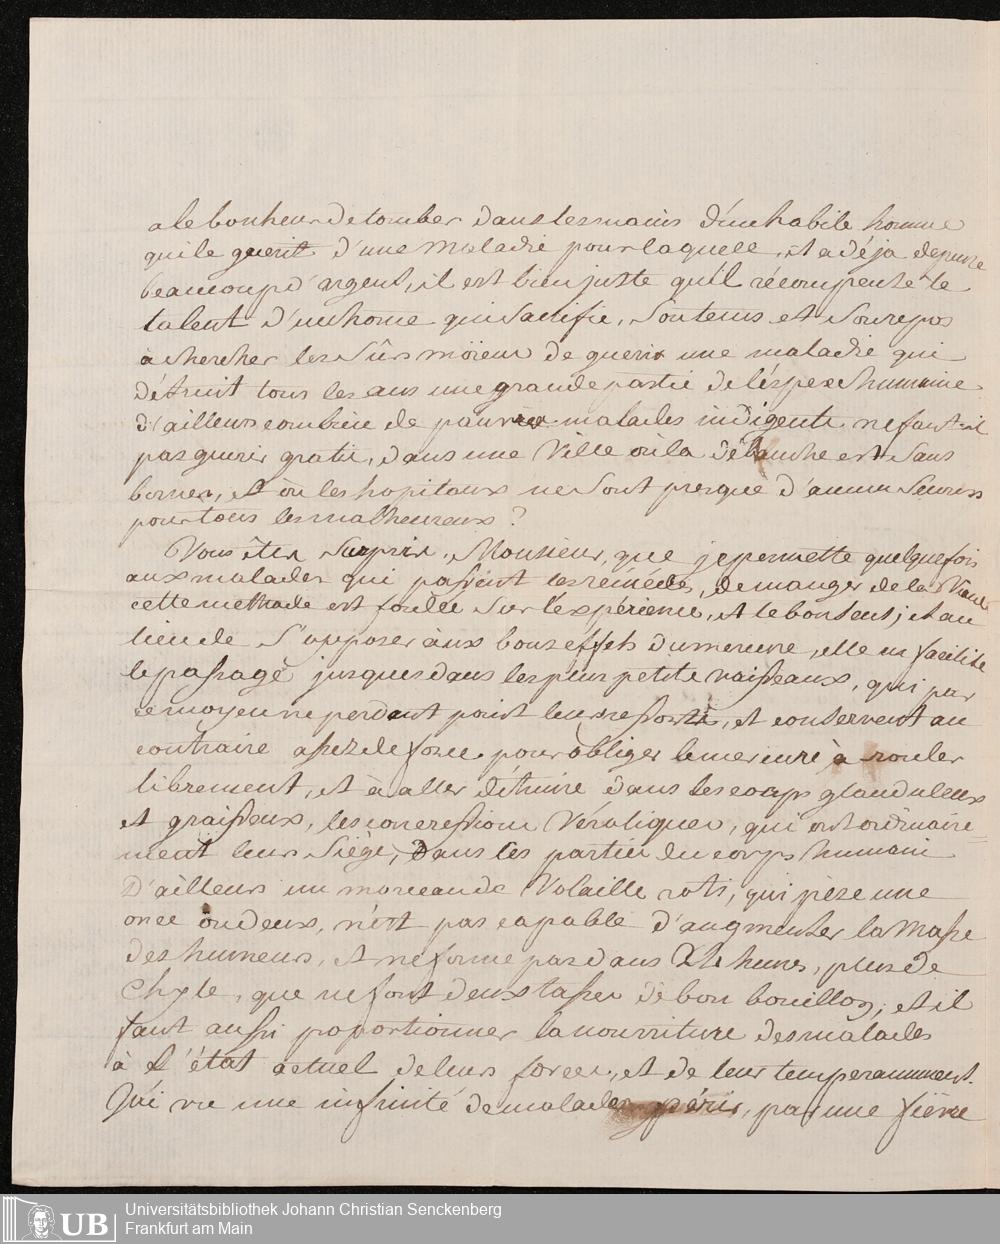 a le bonheur de tomber dans les mains d'un habile homme
qui le guerit d'une Maladie pour laquele, il a déja depensé
beaucoup d'argent, il est bien juste qu'il récompense le
talent d'un home qui Sacrifie, Son tems et Son repos
à chercher les Sûrs moïens de guerir une maladie qui
détruit tous les ans une grande partie de l'éspece humaine
d'ailleurs combien de pauvres malades indigents ne faut-il
pas guerir gratis, dans une Ville où la débauche est Sans
bornes, et où les hopitaux ne Sont presque d'aucun Secours
pour tous les malheureux?
Vous êtes Surpris, Monsieur, que je permette quelquefois
aux malades qui passent les remedes, de manger de la Viande
cette methode est fondée Sur l'expérience, et le bon Sens; et au
lieu de S'opposer aux bons effets du mercure, elle en facilite
le passage jusques dans les plus petits vaisseaux, qui par
ce moyen ne perdent point leurs ressorts, et conservent au
contraire assez de force pour obliger le mercure à rouler
librement, et à aller détruire dans les corps glanduleux
et graisseux, les concressions Véroliques, qui ont ordinaire=
ment leurs Siège, Dans les parties du corps humain
D'ailleurs un morceau de Volaille roti, qui pèse une
once ou deux, n'est pas capable d'augmenter la Masse
des humeurs, et ne forme pas dans 24 heures, plus de
Chyle, que ne font deux tasses de bon bouillon; et il
faut aussi proportionner la nourriture des malades
à L'état actuel de leurs forces, et de leur temperamment.
J'ai vu une infinité de malades périr, par une fièvre
Universitätsbibliothek Johann Christian Senckenberg
UB
Frankfurt am Main